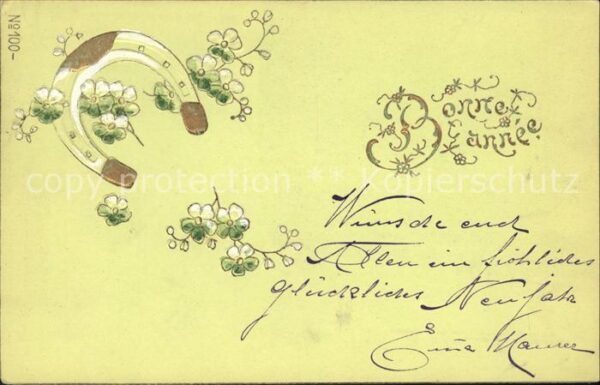 No 100-
Bonne
année.
copy protection * Kopierschutz
Wünsche euch
Allen ein fröhliches
glückliches Neujahr
Maurer